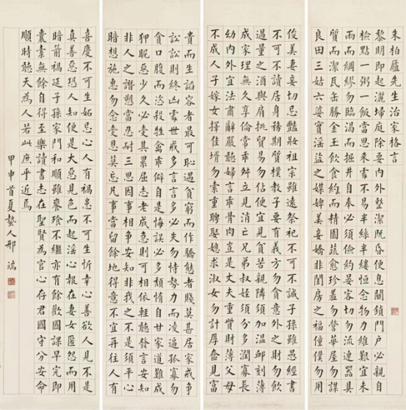 朱柏廬先生治家格言
黎明即起灑掃庭除要內外整潔既昏便息關鎖門戶必親自
檢點一粥一飯當思來處不易半絲半縷恒念物力維艱宜未
雨而綢繆勿臨渴而掘井自奉必須儉約宴客切勿流連器具
質而潔瓦缶勝金玉飲食約而精園蔬愈珍饈勿營華屋勿謀
良田三姑六婆實淫盜之媒婢美妾嬌非閨房之福僮僕勿用
俊美妻妾切忌豔妝祖宗雖遠祭祀不可不誠子孫雖愚經書
不可不讀居身務期質樸教子要有義方勿貪意外之財勿飲
過量之酒與肩挑貿易勿佔便宜見貧苦親鄰須加溫卹刻薄
成家理無久享倫常乖舛立見消亡兄弟叔姪須分多潤寡長
幼內外宜法肅辭嚴聽婦言乖骨肉豈是丈夫重貲財薄父母
不成人子嫁女擇佳婿勿索重聘娶媳求淑女勿計厚奩見富
貴而生諂容者最可恥遇貧窮而作驕態者賤莫甚居家戒爭
訟訟則終凶處世戒多言言多必失勿恃勢力而凌逼孤寡勿
貪口腹而恣殺牲禽乖僻自是悔誤必多頹惰自甘家道難成
狎昵惡少久必受其累屈志老成急則可相依輕聽發言安知
非人之譖愬當忍耐三思因事相爭安知非我之不是須平心
暗想施惠勿念受恩莫忘凡事當留餘地得意不宜再往人有
喜慶不可生妬忌心人有禍患不可生忻幸心善欲人見不是
真善惡恐人知便是大惡見色而起淫心報在妻女匿怨而用
暗箭禍延子孫家門和順雖饔飧不繼亦有餘歡國課早完即
囊橐無餘自得至樂讀書志在聖賢為官心存君國守分安命
順時聽天為人若此庶乎近焉
甲申首夏蟄人邢端